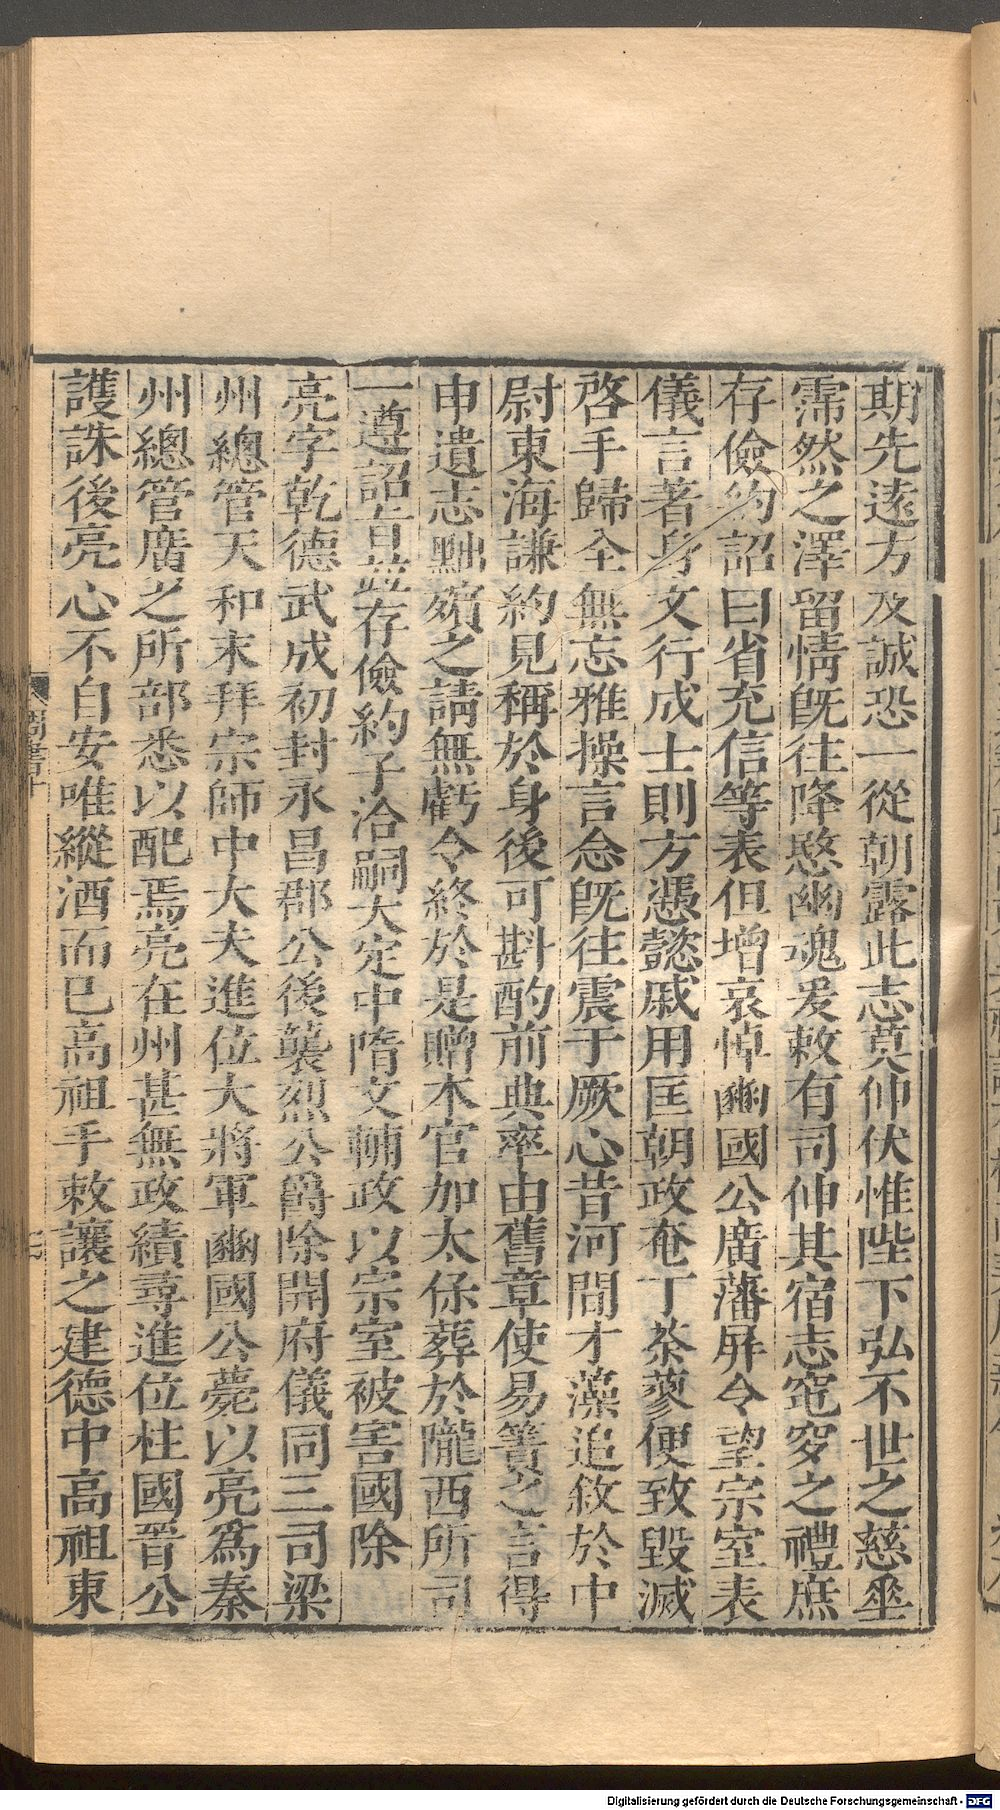 期先遠方及誠恐一從朝露此志莫伸伏惟陛下弘不世之慈垂
霈然之澤留情旣往降愍幽魂爰敕有司伸其宿志窀穸之禮庶
存儉約詔曰省充信等表但增哀悼豳國公廣藩屏令望宗室表
儀言著身文行成士則方憑懿戚用匡朝政奄丁荼蓼便致毀滅
啓手歸全無忘雅操言念旣往震于厥心昔河間才藻追敘於中
尉東海謙約見稱於身後可斟酌前典率由舊章使易簀之言得
申遺志黜殯之請無虧令終於是贈本官加太保葬於隴西所司
一遵詔旨並存儉約子洽嗣大定中隋文輔政以宗室被害國除
亮字乾德武成初封永昌郡公後襲烈公爵除開府儀同三司梁
州總管天和末拜宗師中大夫進位大將軍豳國公薨以亮爲秦
州總管廣之所部悉以配焉亮在州甚無政績尋進位柱國晉公
護誅後亮心不自安唯縱酒而已高祖手敕讓之建德中高祖東
周書十
Digitalisierung gefördert durch die Deutsche Forschungsgemeinschaft - DFG